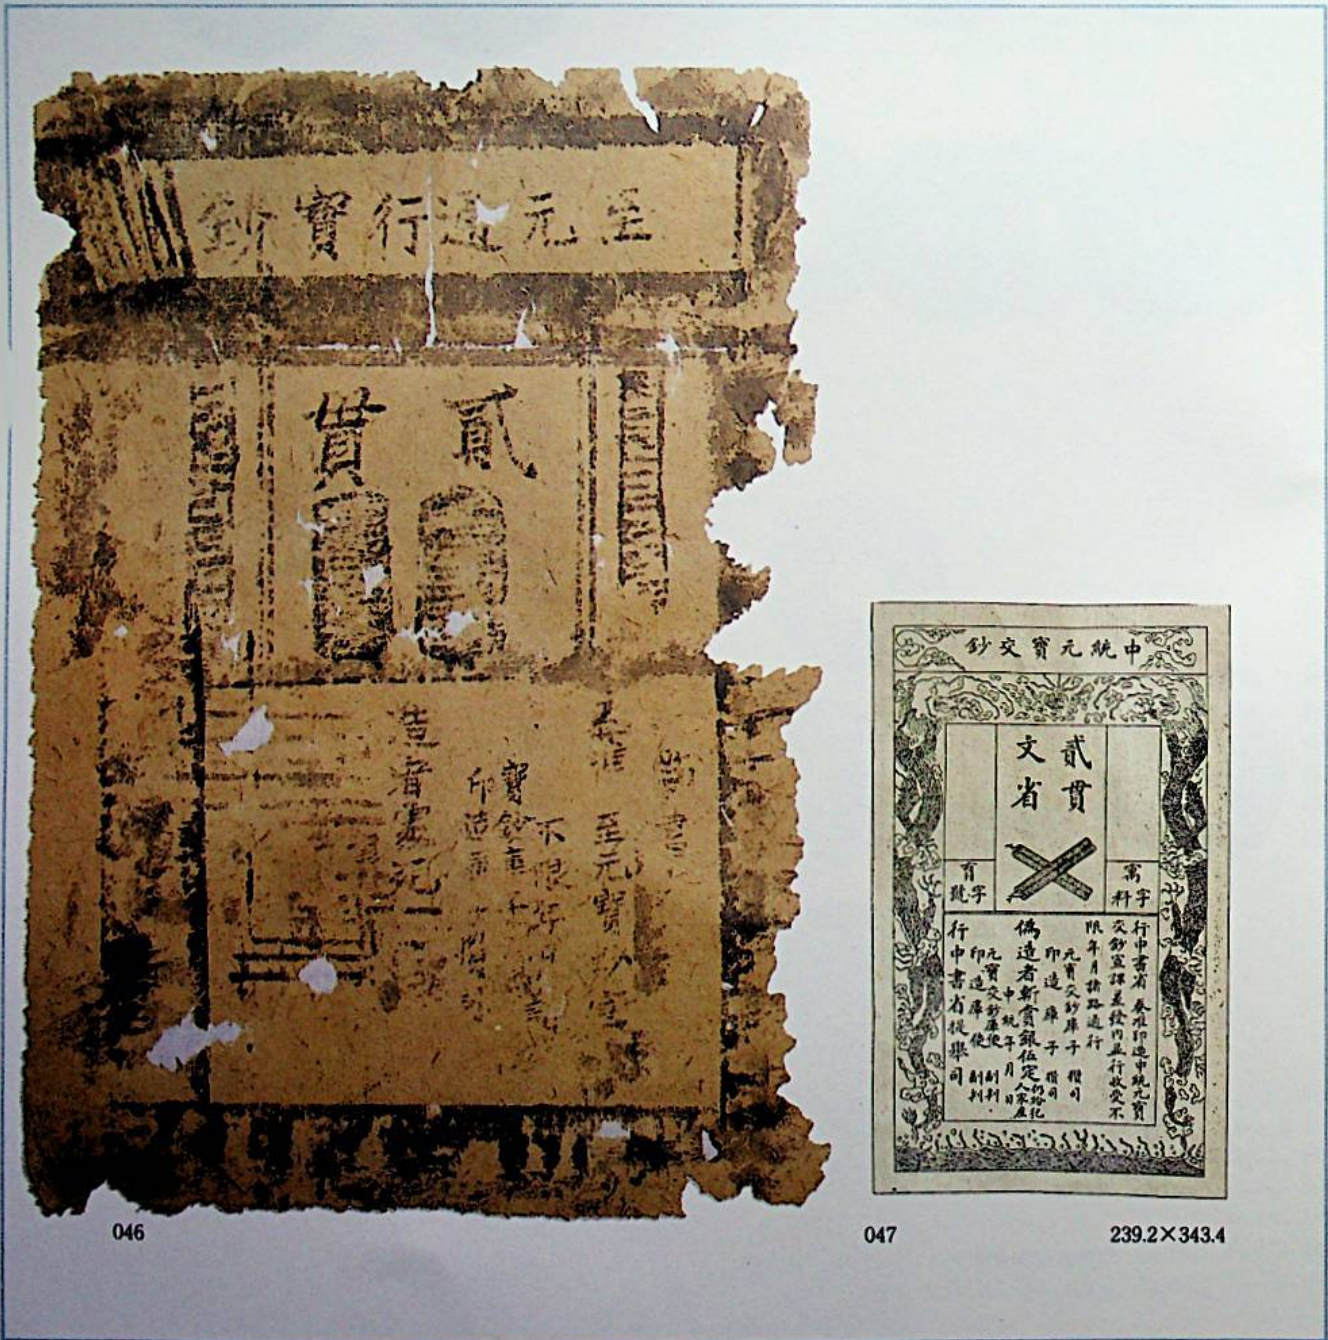 至元通行寳鈔
貳貫
尚書
奏准 至元寳鈔
不限
寳鈔庫子
印造
造者處死
046
中統元寳交鈔
貳貫
文省
寓字料
育字號
行中書省 奏准印造中統元寳
交鈔宣課差發內並行收受不
限年月諸路通行
元寳交鈔庫子 攢司
印造庫子 攢司
偽造者斬賞銀伍定仍給犯人家產
中統年 月 日
元寳交鈔庫使 副判
印造庫使 副判
行中書省提舉司
047
239.2×343.4